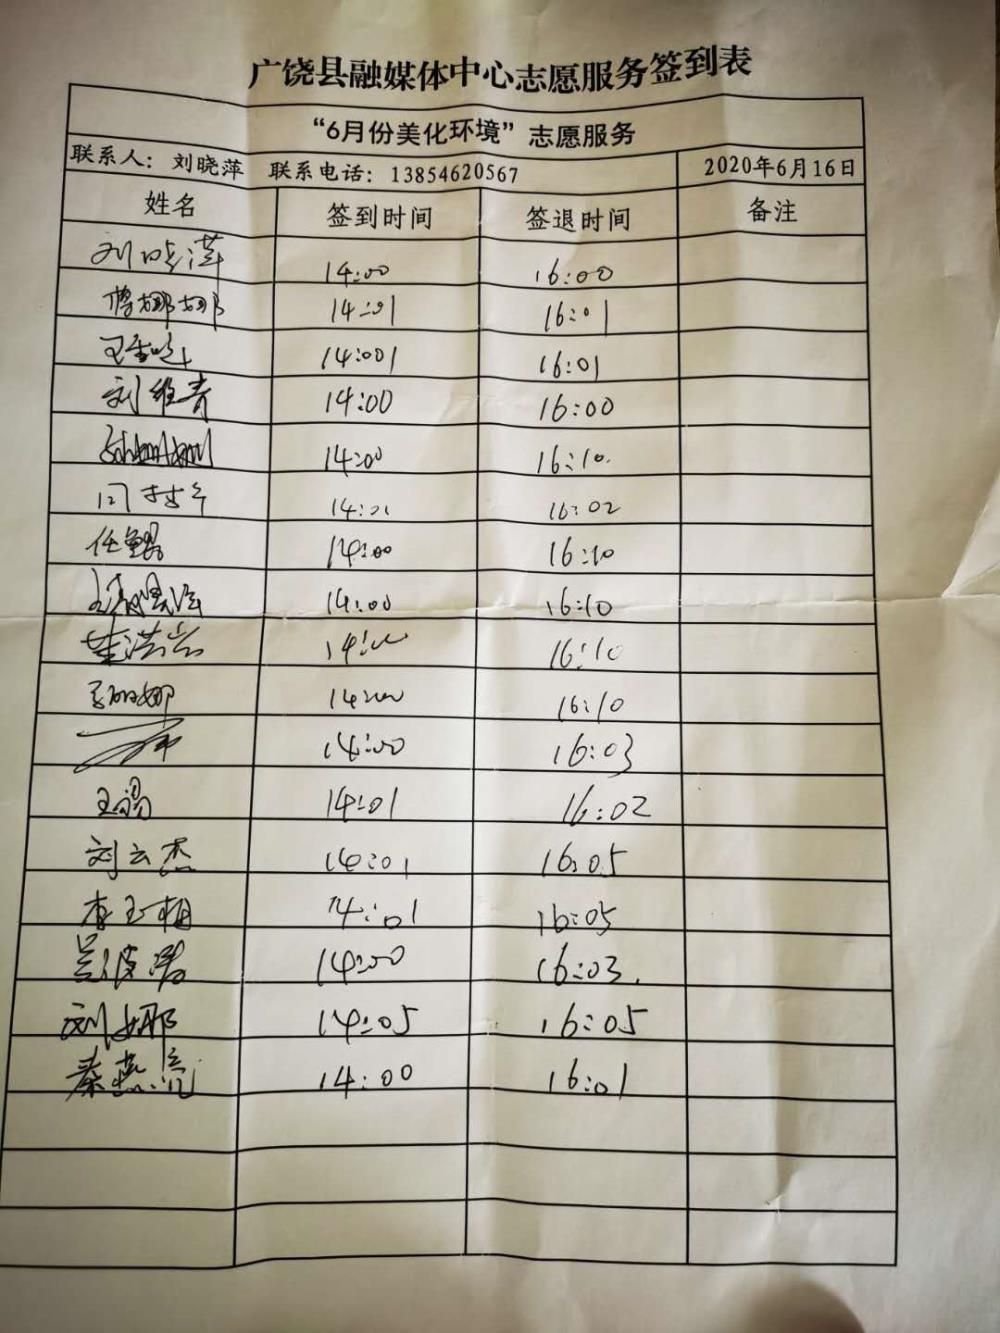 广饶县融媒体中心志愿服务签到表
“6月份美化环境”志愿服务
联系人：刘晓萍 联系电话：13854620567 2020年6月16日
姓名 签到时间 签退时间 备注
刘晓萍 14:00 16:00
娜娜 14:01 16:01
14:001 16:01
刘维青 14:00 16:00
姗姗 14:00 16:10
14:01 16:02
任 14:00 16:10
14:00 16:10
14:00 16:10
娜 14:00 16:10
14:00 16:03
王 14:01 16:02
刘云杰 14:01 16:05
李玉梅 14:01 16:05
14:00 16:03.
刘娜 14:05 16:05
秦燕 14:00 16:01